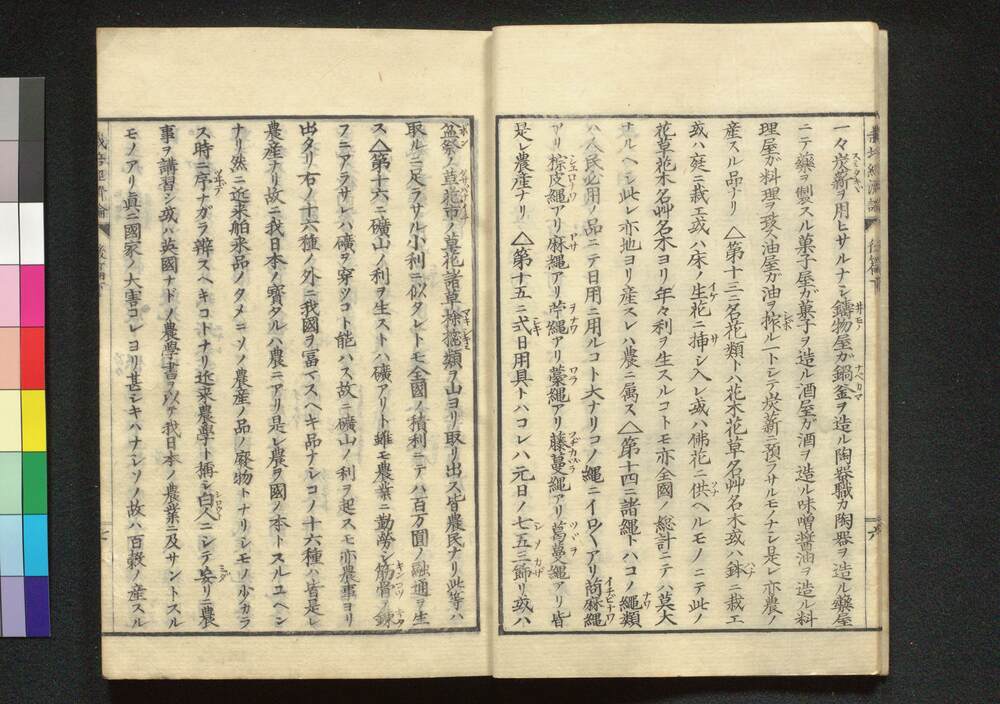 一々炭薪ヲ用ヒサルナシ鑄物屋ガ鍋釜ヲ造ル陶器職カ陶器ヲ造ル藥屋
ニテ藥ヲ製スル菓子屋ガ菓子ヲ造ル酒屋ガ酒ヲ造ル味噌醬油ヲ造ル料
理屋ガ料理ヲ 油屋ガ油ヲ搾ル一トシテ炭薪ニ預ラサルモノナシ是レ亦農ノ
産スル品ナリ △第十三ニ名花類トハ花木花草名艸名木或ハ鉢ニ栽エ
或ハ庭ニ栽エ或ハ床ノ生花ニ挿シ入レ或ハ佛花ニ供ヘルモノニテ此ノ
花草花木名艸名木ヨリ年々利ヲ生スルコトモ亦全國ノ總計ニテハ莫大
ナルヘシ此レ亦地ヨリ産スレハ農ニ属ス△第十四ニ諸繩トハコノ繩類
ハ人民必用ノ品ニテ日用ニ用ルコト大ナリコノ繩ニイロ〱アリ苘麻繩
アリ椶皮繩アリ麻繩アリ苧繩アリ藁繩アリ藤蔓繩アリ葛蔓繩アリ皆
是レ農産ナリ △第十五ニ弍日用具トハコレハ元日ノ七五三飾リ或ハ
盆祭ノ草花市ノ草花諸草 類ヲ山ヨリ取リ出ス皆農民ナリ此等ハ
取ルニ足ラサル小利ニ似タレトモ全國ノ積利ニテハ百万圓ノ融通ヲ生
ス△第十六ニ礦山ノ利ヲ生ストハ礦アリト雖モ農業ニ勤勞シ筋骨ノ錬
フニアラサレハ礦ヲ穿ツコト能ハス故ニ礦山ノ利ヲ起スモ亦農事ヨリ
出タリ右ノ十六種ノ外ニ我國ヲ冨マスヘキ品ナシコノ十六種ハ皆是レ
農産ナリ故ニ我日本ノ寶タルハ農ニアリ是レ農ヲ國ノ本トスルユヘン
ナリ然ニ近来舶来品ノタメニソノ農産ノ品ノ廢物トナリシモノ少カラ
ス時ニ序ナガラ辨スヘキコトナリ近来農學ト稱シ白人ニシテ妄リニ農
事ヲ講習シ或ハ英國ナドノ農學書ヲ以テ我日本ノ農業ニ及サントスル
モノアリ眞ニ國家ノ大害コレヨリ甚シキハナシソノ故ハ百穀ノ産スル